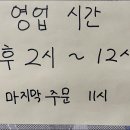 영업 시간
후 2시 ~ 12시
마지막 주문 11시